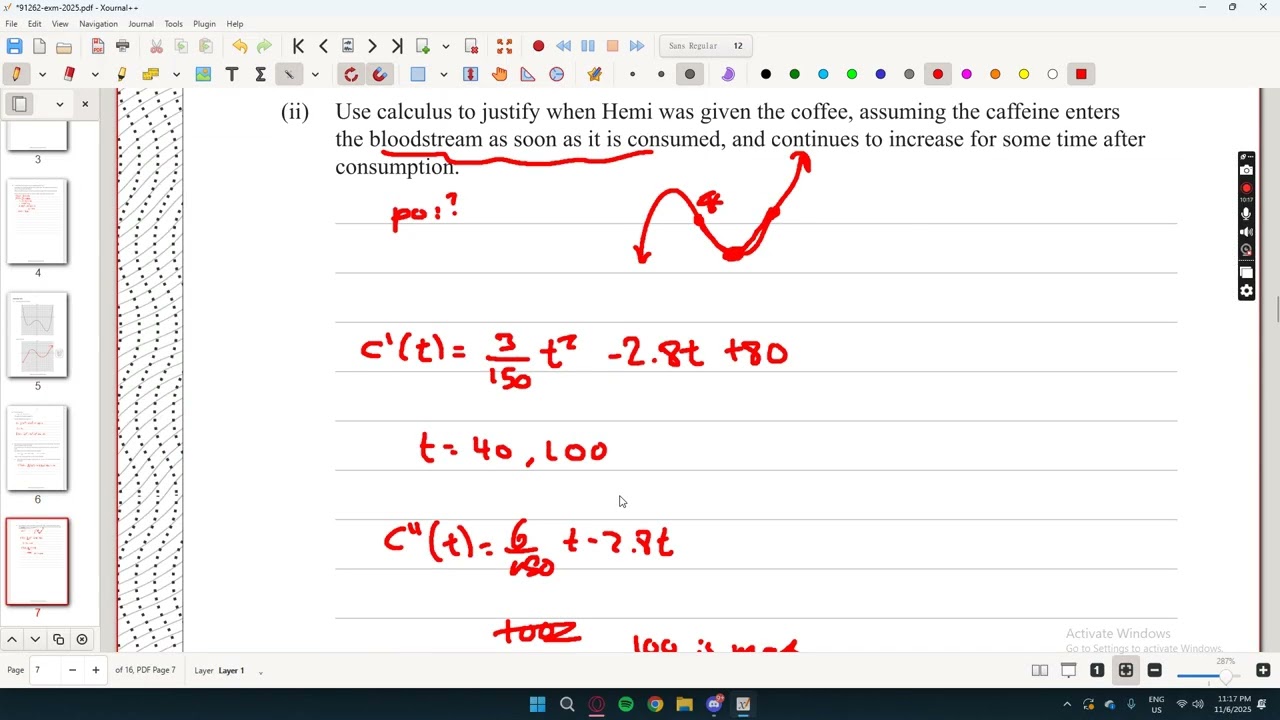 *91262-exm-2025.pdf - Xournal++
File Edit View Navigation Journal Tools Plugin Help
Sans Regular 12
(ii) Use calculus to justify when Hemi was given the coffee, assuming the caffeine enters
the bloodstream as soon as it is consumed, and continues to increase for some time after
consumption.
poi?
C'(t) = 3/150 t² - 2.8t + 80
t = 40, 100
C''(t) = 6/150 t - 2.8t
100 is
3
4
5
6
7
10:17
Activate Windows
Go to Settings to activate Windows.
Page 7 of 16, PDF Page 7 Layer Layer 1
287%
ENG
US
11:17 PM
11/6/2025